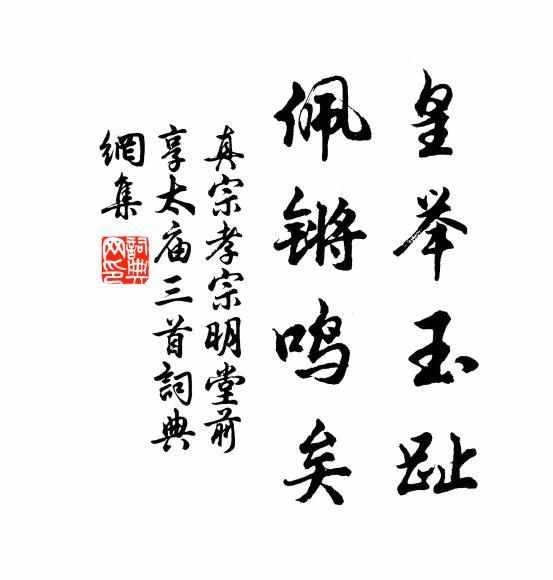 皇举玉趾
佩锵鸣矣
真宗孝宗明堂前
享太庙三首詞典
網集
詞典
网印